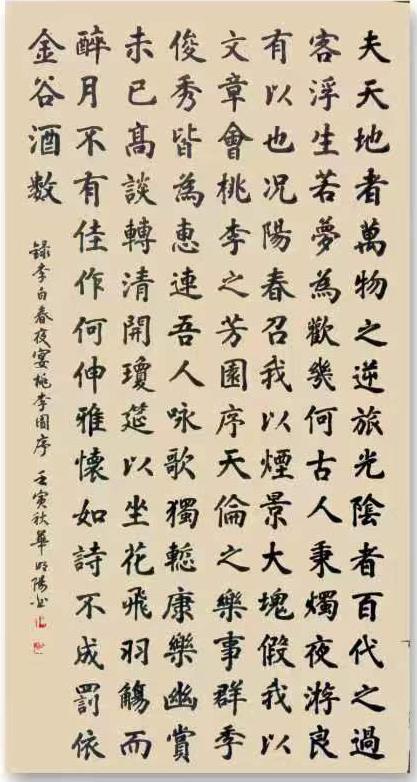 夫天地者萬物之逆旅光陰者百代之過
客浮生若夢為歡幾何古人秉燭夜游良
有以也况陽春召我以煙景大塊假我以
文章會桃李之芳園序天倫之樂事群季
俊秀皆為惠連吾人咏歌獨康樂幽賞
未已髙談轉清開瓊筵以坐花飛羽觴而
醉月不有佳作何伸雅懷如詩不成罰依
金谷酒数
録李白春夜宴桃李園序 壬寅秋華明陽书